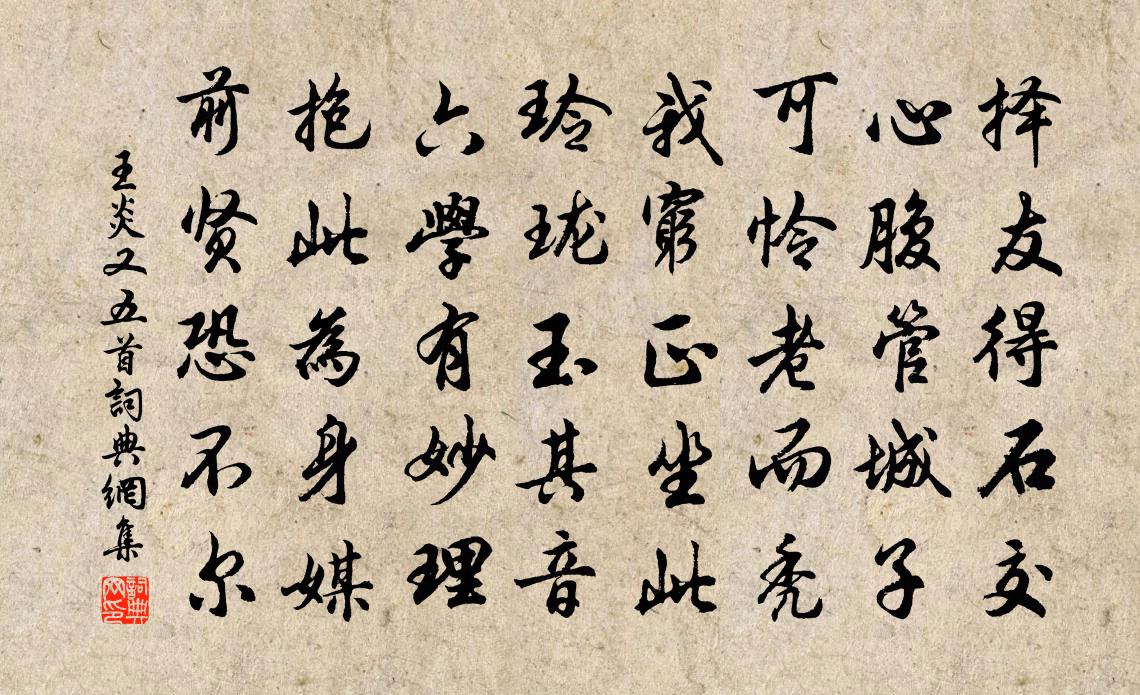 择友得石交
心腹管城子
可怜老而秃
我窮正坐此
玲珑玉其音
六學有妙理
抱此為身媒
前贤恐不尔
王炎又五首詞典網集
詞典網印